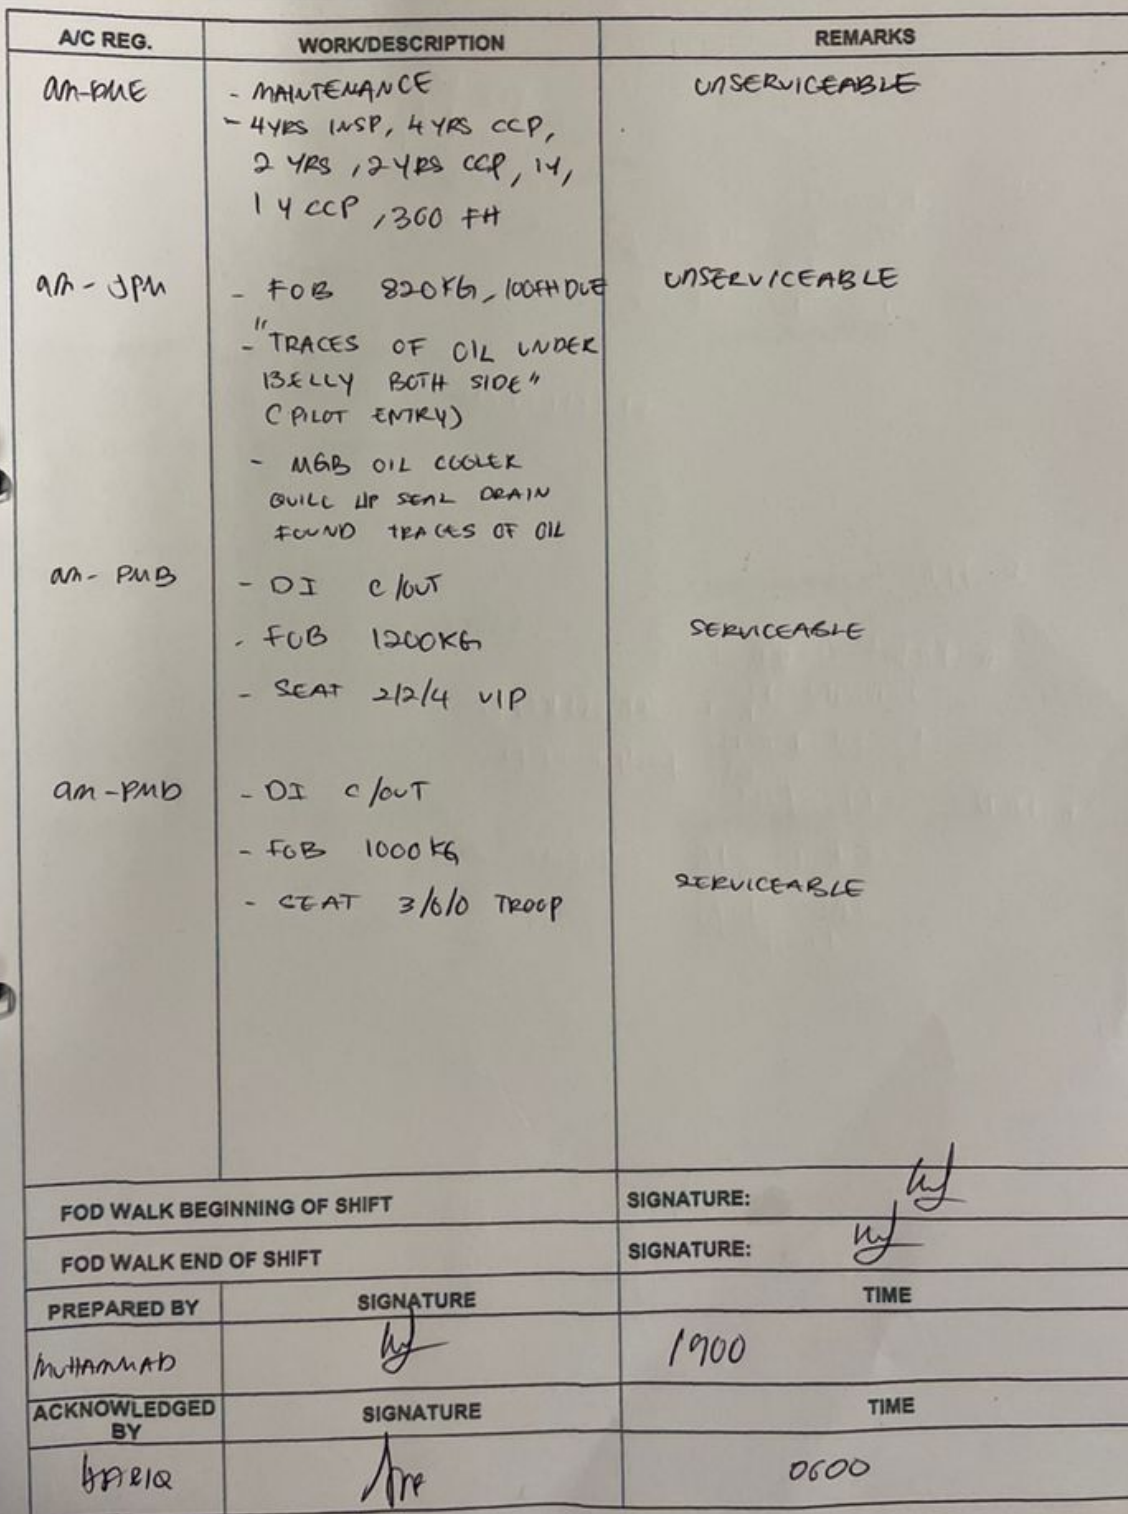 A/C REG. WORK/DESCRIPTION REMARKS
9M-PME - MAINTENANCE UNSERVICEABLE
- 4YRS INSP, 4 YRS CCP,
2 YRS, 2 YRS CCP, 1Y,
1 Y CCP, 300 FH
9M-JPM - FOB 820KG, 100FH DUE UNSERVICEABLE
- "TRACES OF OIL UNDER
BELLY BOTH SIDE"
(PILOT ENTRY)
- MGB OIL COOLER
QUILL LIP SEAL DRAIN
FOUND TRACES OF OIL
9M-PMB - DI C/OUT
- FOB 1200KG SERVICEABLE
- SEAT 2/2/4 VIP
9M-PMD - DI C/OUT
- FOB 1000KG
- SEAT 3/6/0 TROOP SERVICEABLE
FOD WALK BEGINNING OF SHIFT SIGNATURE:
FOD WALK END OF SHIFT SIGNATURE:
PREPARED BY SIGNATURE TIME
MUHAMMAD 1900
ACKNOWLEDGED BY SIGNATURE TIME
0600